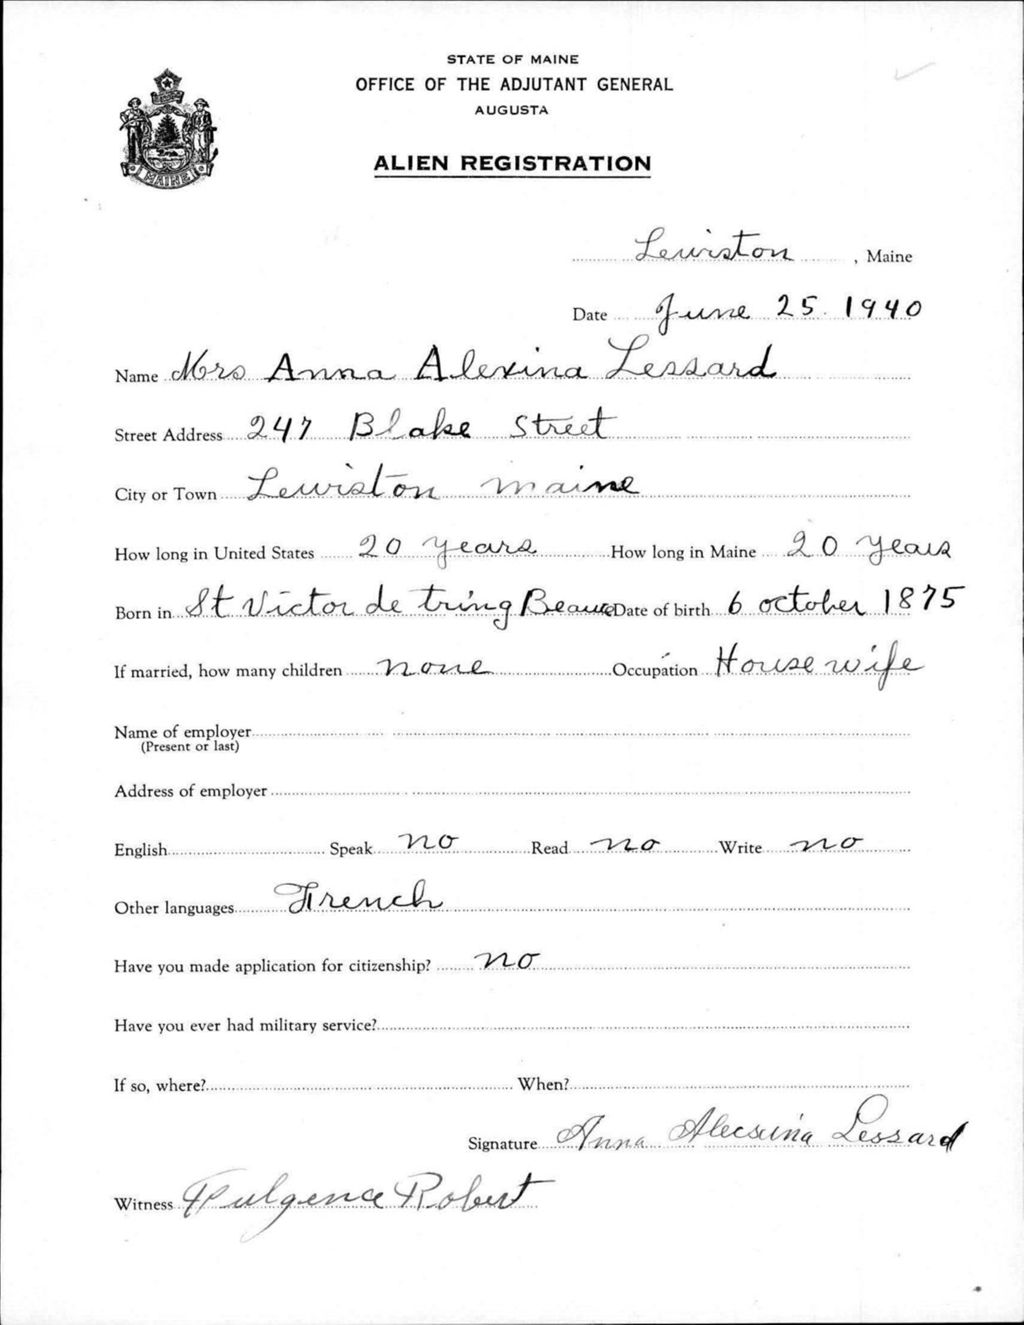 STATE OF MAINE
OFFICE OF THE ADJUTANT GENERAL
AUGUSTA
ALIEN REGISTRATION
MAINE
Lewiston, Maine
Date June 25. 1940
Name Mrs Anna Alexina Lessard
Street Address 247 Blake Street
City or Town Lewiston Maine
How long in United States 20 years How long in Maine 20 years
Born in St Victor de tring Beauce Date of birth 6 october 1875
If married, how many children none Occupation House wife
Name of employer
(Present or last)
Address of employer
English Speak no Read no Write no
Other languages French
Have you made application for citizenship? no
Have you ever had military service?
If so, where? When?
Signature Anna Alecsina Lessard
Witness Fulgence Robert